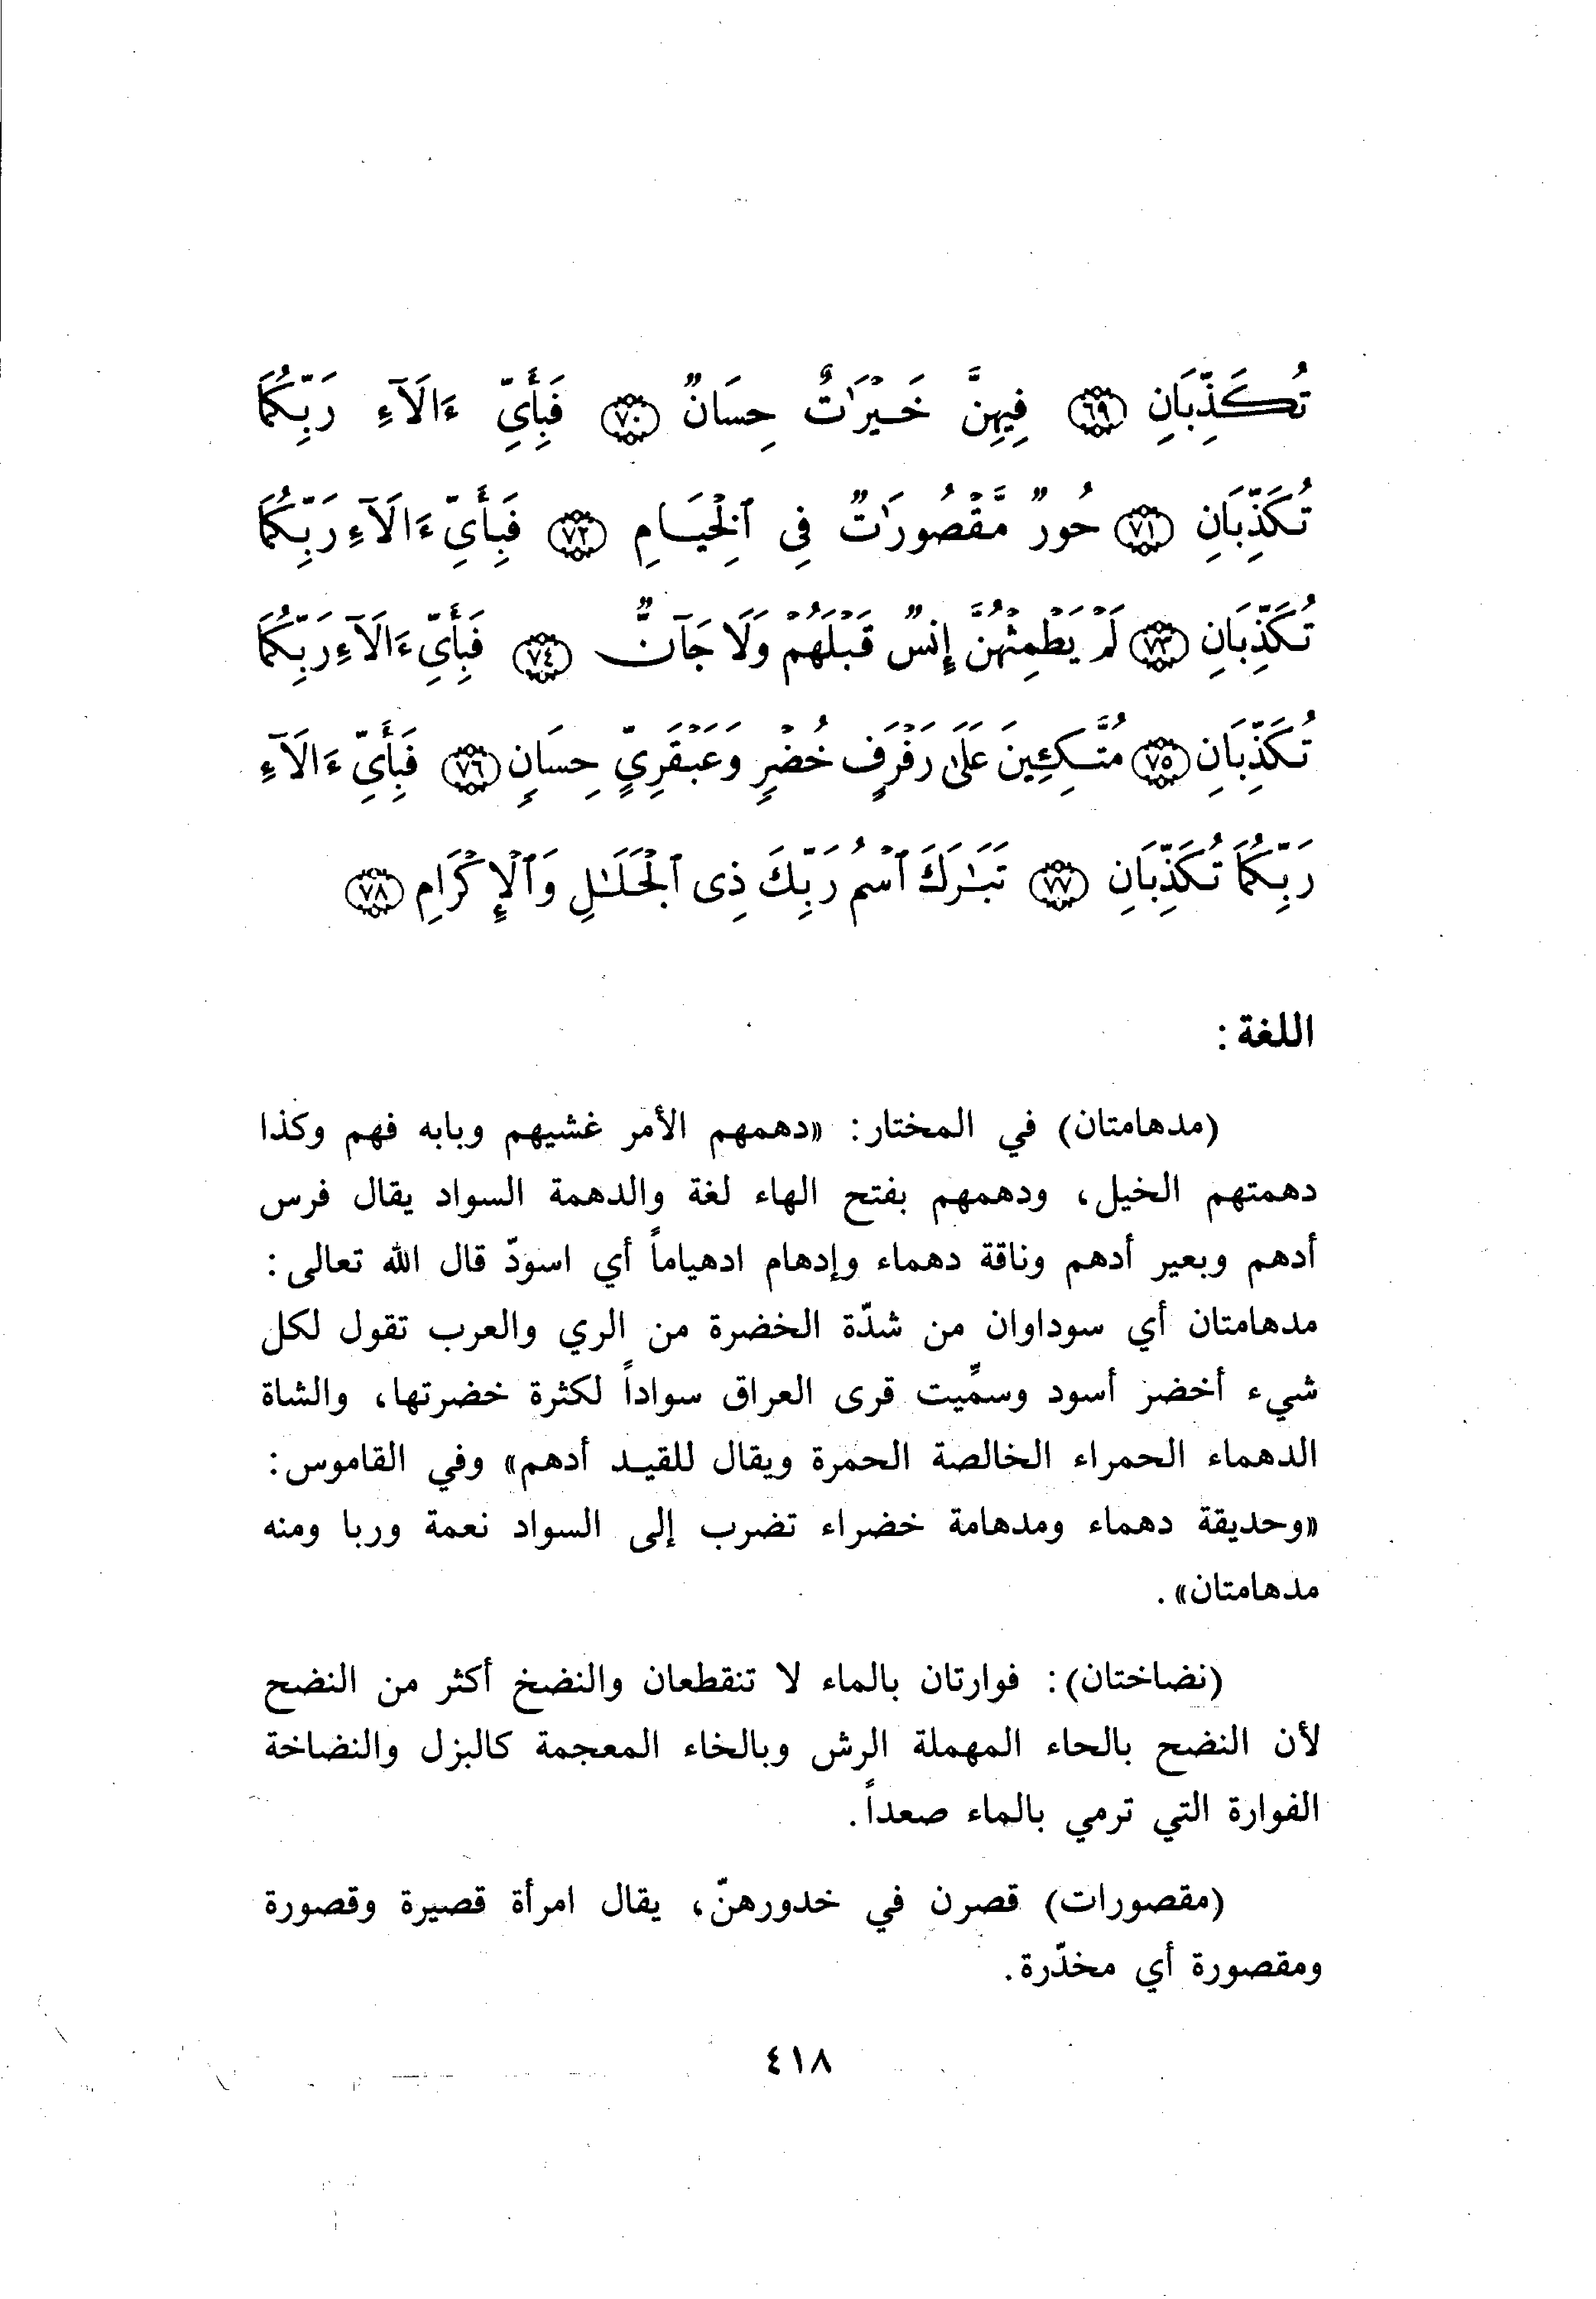 تُكَذِّبَانِ ﴿٦٩﴾ فِيهِنَّ خَيْرَٰتٌ حِسَانٌ ﴿٧٠﴾ فَبِأَيِّ ءَالَآءِ رَبِّكُمَا
تُكَذِّبَانِ ﴿٧١﴾ حُورٌ مَّقْصُورَٰتٌ فِى ٱلْخِيَامِ ﴿٧٢﴾ فَبِأَيِّ ءَالَآءِ رَبِّكُمَا
تُكَذِّبَانِ ﴿٧٣﴾ لَمْ يَطْمِثْهُنَّ إِنسٌ قَبْلَهُمْ وَلَا جَآنٌّ ﴿٧٤﴾ فَبِأَيِّ ءَالَآءِ رَبِّكُمَا
تُكَذِّبَانِ ﴿٧٥﴾ مُتَّكِئِينَ عَلَىٰ رَفْرَفٍ خُضْرٍ وَعَبْقَرِيٍّ حِسَانٍ ﴿٧٦﴾ فَبِأَيِّ ءَالَآءِ
رَبِّكُمَا تُكَذِّبَانِ ﴿٧٧﴾ تَبَٰرَكَ ٱسْمُ رَبِّكَ ذِى ٱلْجَلَٰلِ وَٱلْإِكْرَامِ ﴿٧٨﴾
اللغة :
(مدهامتان) في المختار: «دهمهم الأمر غشيهم وبابه فهم وكذا
دهمتهم الخيل، ودهمهم بفتح الهاء لغة والدهمة السواد يقال فرس
أدهم وبعير أدهم وناقة دهماء وإدهام ادهياماً أي اسودّ قال الله تعالى:
مدهامتان أي سوداوان من شدّة الخضرة من الري والعرب تقول لكل
شيء أخضر أسود وسمِّيت قرى العراق سواداً لكثرة خضرتها، والشاة
الدهماء الحمراء الخالصة الحمرة ويقال للقيد أدهم» وفي القاموس:
«وحديقة دهماء ومدهامة خضراء تضرب إلى السواد نعمة وربا ومنه
مدهامتان».
(نضاختان): فوارتان بالماء لا تنقطعان والنضخ أكثر من النضح
لأن النضح بالحاء المهملة الرش وبالخاء المعجمة كالبزل والنضاخة
الفوارة التي ترمي بالماء صعداً.
(مقصورات) قصرن في خدورهنّ، يقال امرأة قصيرة وقصورة
ومقصورة أي مخدّرة.
٤١٨